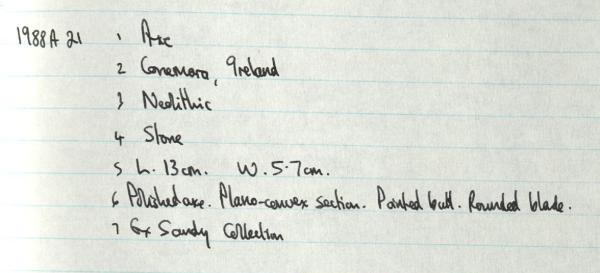 1988A 21 1 Axe
2 Conemara, Ireland
3 Neolithic
4 Stone
5 L. 13cm. W. 5.7cm.
6 Polished axe. Plano-convex section. Pointed butt. Rounded blade.
7 Ex Sandy Collection